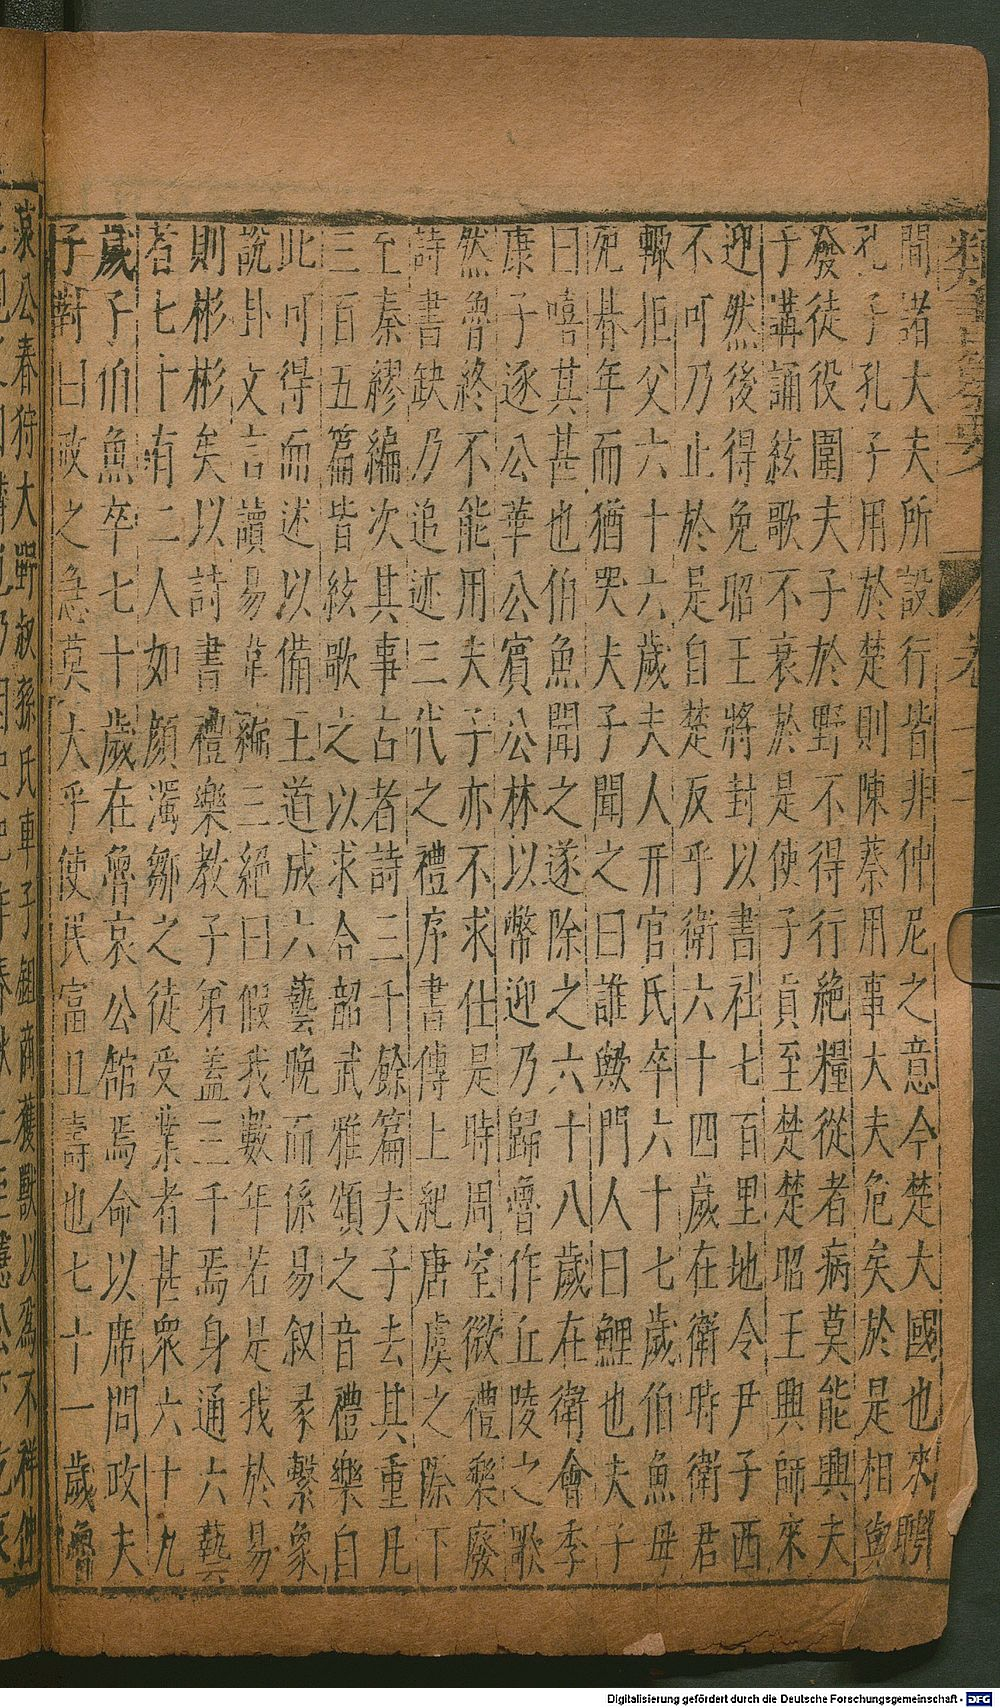 間諸大夫所設行皆非仲尼之意今楚大國也來聘
孔子孔子用於楚則陳蔡用事大夫危矣於是相與
發徒役圍夫子於野不得行絕糧從者病莫能興夫
子講誦絃歌不衰於是使子貢至楚楚昭王興師來
迎然後得免昭王將封以書社七百里地令尹子西
不可乃止於是自楚反乎衛六十四歲在衛時衛君
輒拒父六十六歲夫人亓官氏卒六十七歲伯魚母
死朞年而猶哭夫子聞之曰誰歟門人曰鯉也夫子
曰嘻其甚也伯魚聞之遂除之六十八歲在衛會季
康子逐公華公賓公林以幣迎乃歸魯作丘陵之歌
然魯終不能用夫子亦不求仕是時周室微禮樂廢
詩書缺乃追迹三代之禮序書傳上紀唐虞之際下
至秦繆編次其事古者詩三千餘篇夫子去其重凡
三百五篇皆絃歌之以求合韶武雅頌之音禮樂自
此可得而述以備王道成六藝晚而係易叙彖繫象
說卦文言讀易韋編三絕曰假我數年若是我於易
則彬彬矣以詩書禮樂教子弟蓋三千焉身通六藝
者七十有二人如顏濁鄒之徒受業者甚眾六十九
歲子伯魚卒七十歲在魯哀公館焉命以席問政夫
子對曰政之急莫大乎使民富且壽也七十一歲魯
哀公春狩大野叔孫氏車子鉏商獲獸以為不祥仲